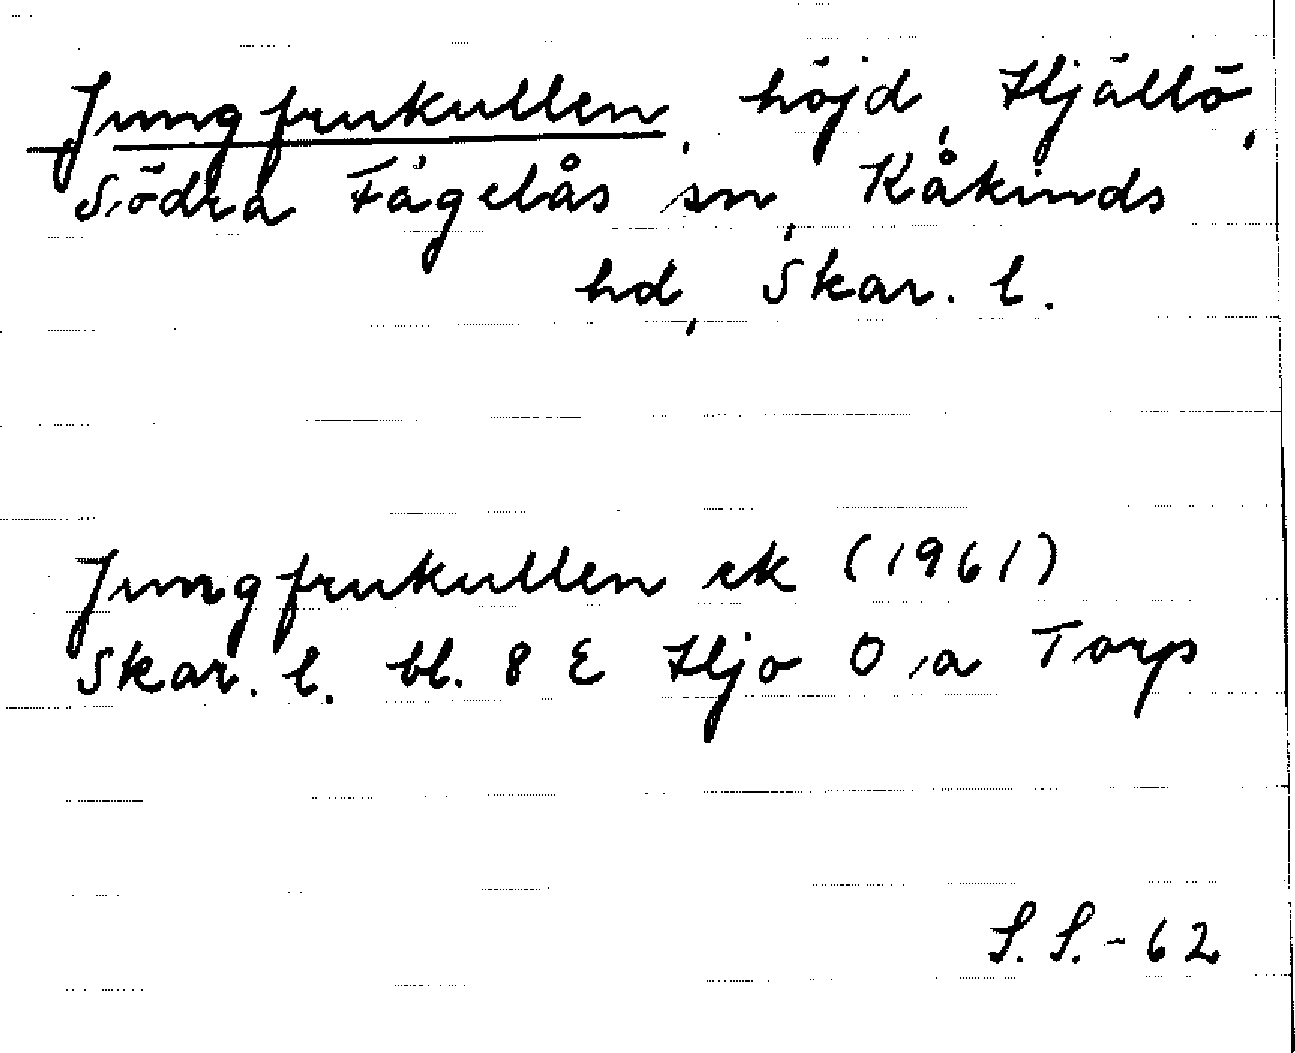 Jungfrukullen, höjd, Hjällö,
Södra Fågelås sn, Kåkinds
hd, Skar. l.
Jungfrukullen ek (1961)
Skar. l. bl. 8 E Hjo O a Torp
S. S. - 62